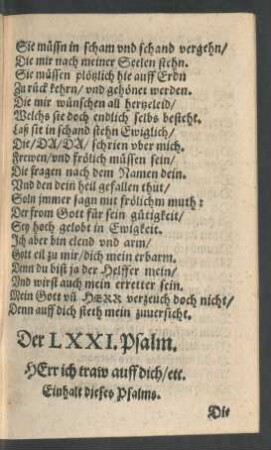 Sie müssn in scham vnd schand vergehn/
Die mir nach meiner Seelen stehn.
Sie müssen plötzlich hie auff Erdn
Zu rück kehrn/ vnd gehönet werden.
Die mir wünschen all hertzeleid/
Welchs sie doch endlich selbs besteht.
Laß sie in schand stehn Ewiglich/
Die/ DA/ DA/ schrien vber mich.
Frewen/ vnd frölich müssen sein/
Die fragen nach dem Namen dein.
Vnd den dein heil gefallen thut/
Soln jmmer sagn mit frölichm muth:
Der from Gott für sein gütigkeit/
Sey hoch gelobt in Ewigkeit.
Ich aber bin elend vnd arm/
Gott eil zu mir/ dich mein erbarm.
Denn du bist ja der Helffer mein/
Vnd wirst auch mein erretter sein.
Mein Gott vñ HERR verzeuch doch nicht/
Denn auff dich steth mein zuuersicht.
Der LXXI. Psalm.
HErr ich traw auff dich/ ett.
Einhalt dieses Psalms.
Die